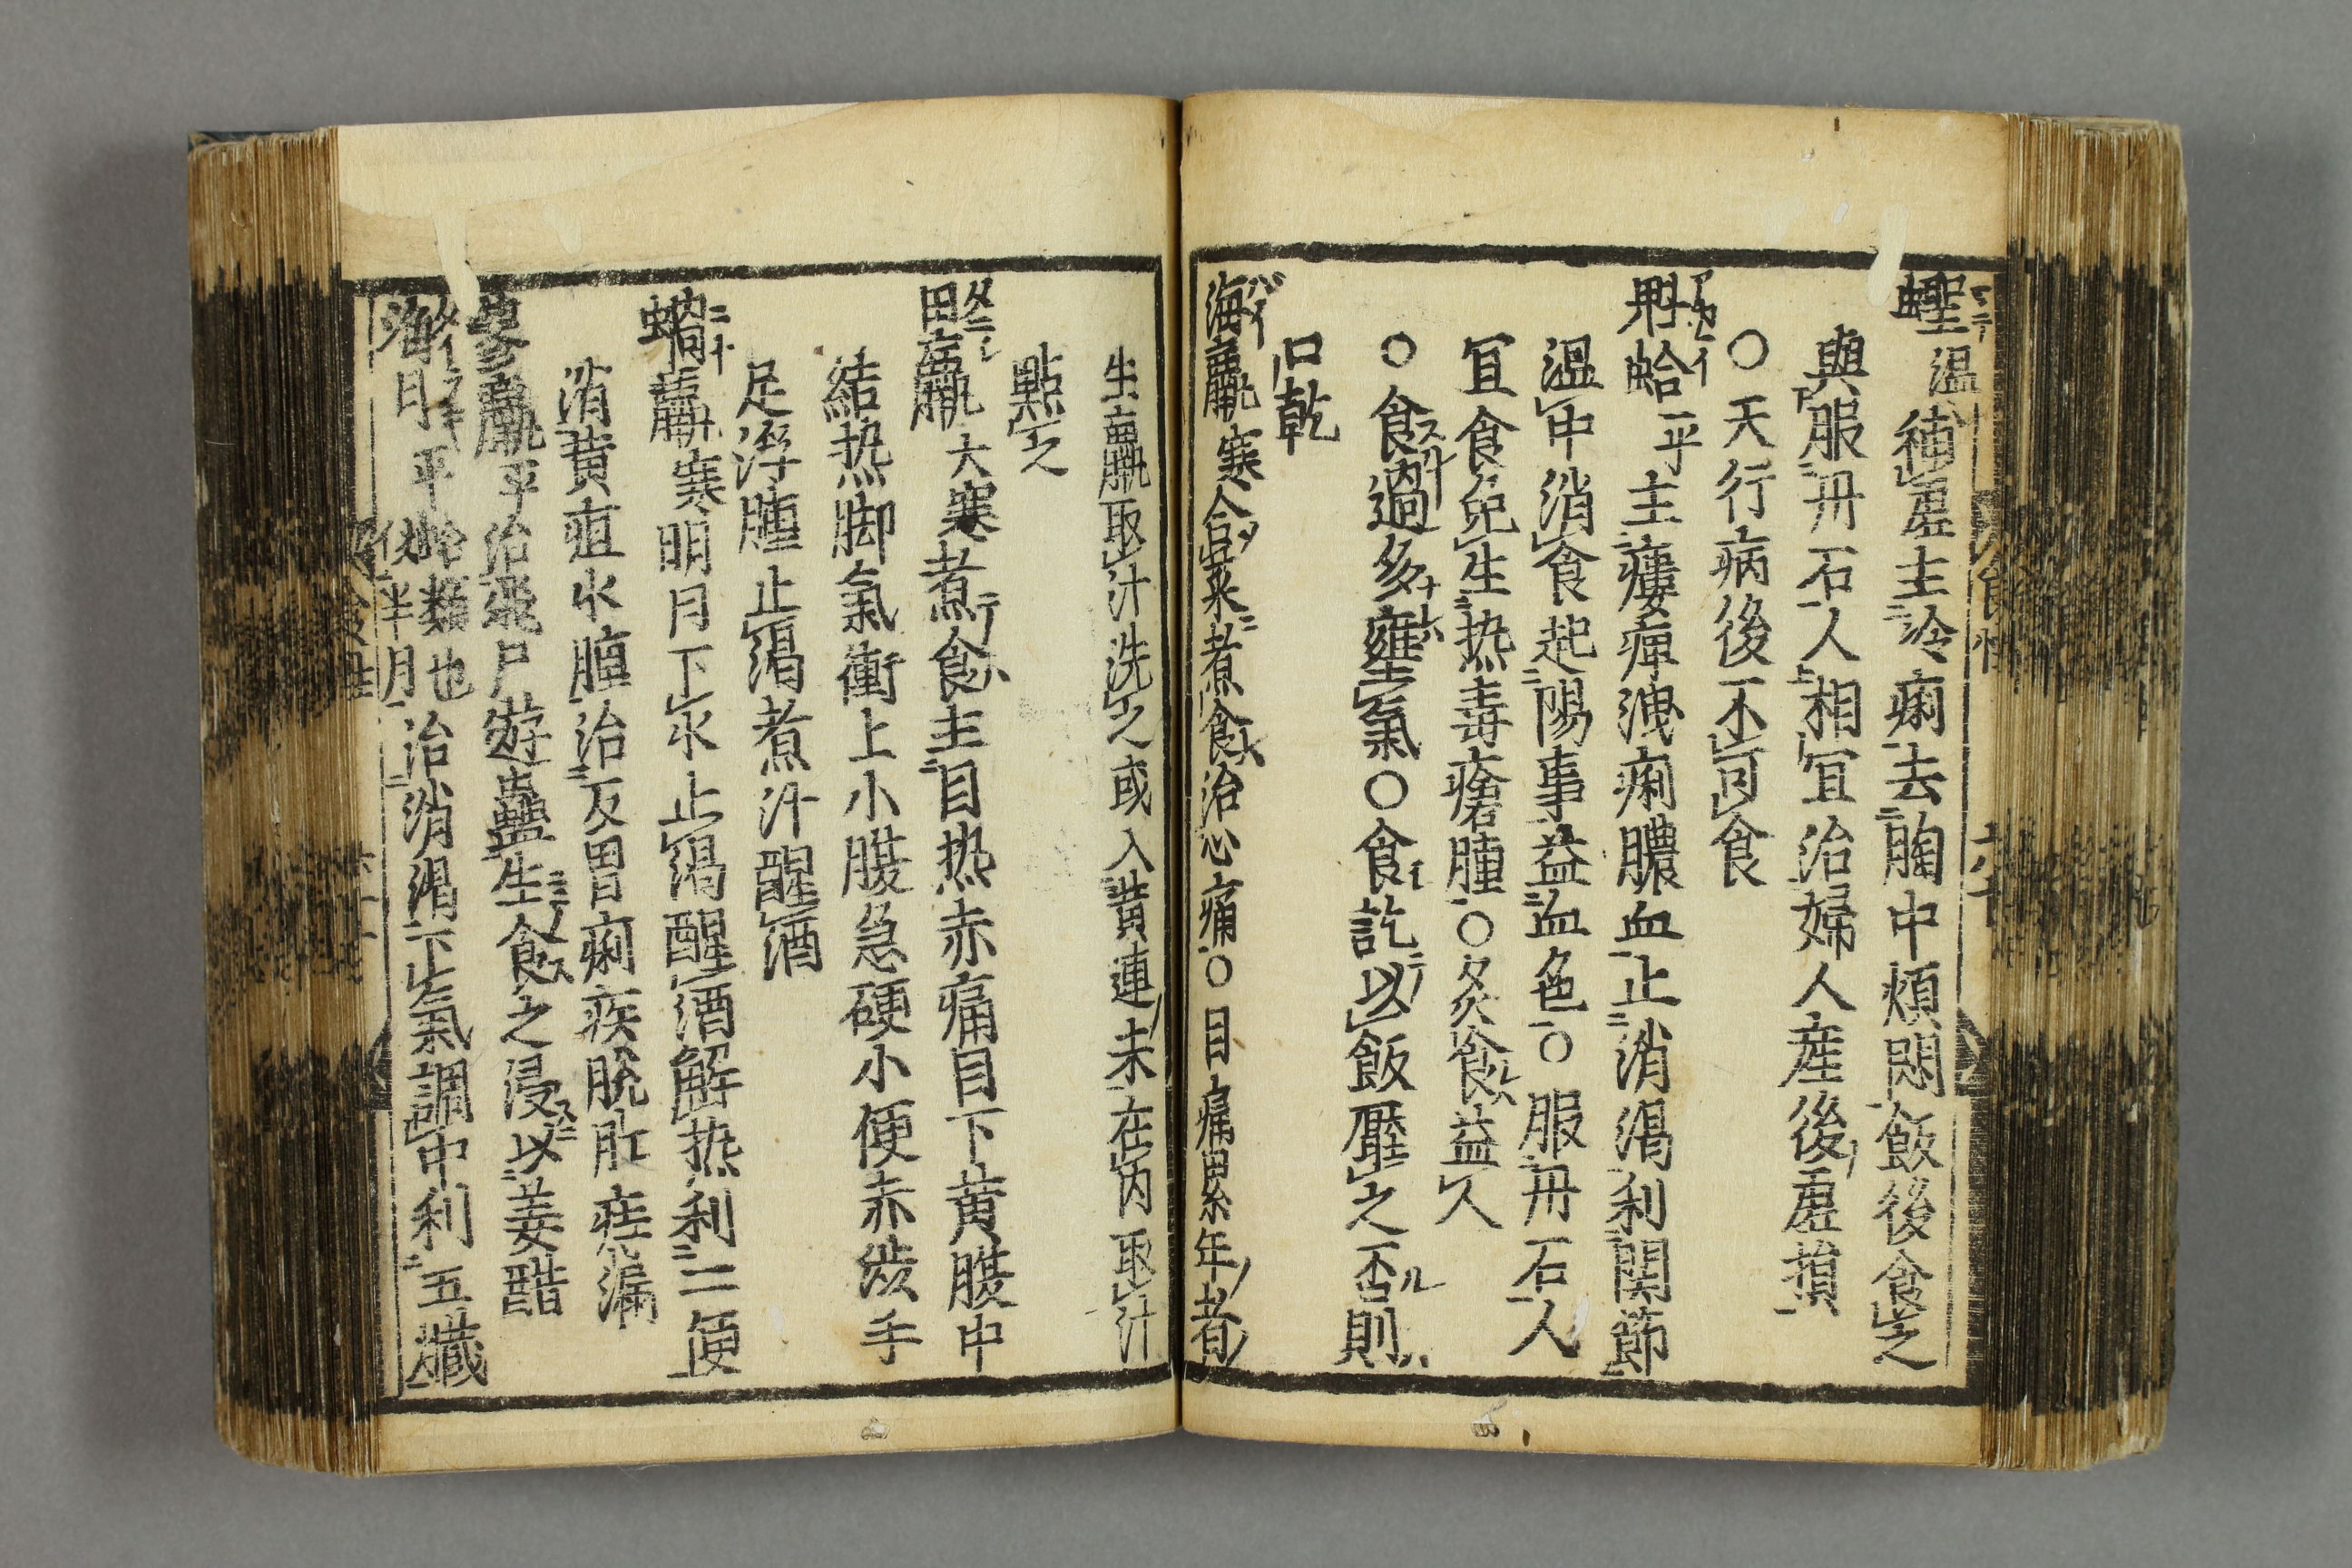 蟶温補虛主冷痢去胸中煩悶飯後食之
與服丹石人相冝治婦人産後虛損
○天行病後不可食
蚶蛤平主痿痺洩痢膿血止消渴利関節
溫中消食起陽事益血色○服丹石人
冝食免生热毒瘡腫○炙食益人
○食過多壅氣○食訖以飯壓之否則
口乾
海蠃寒合菜煮食治心痛○目痛累年者
生蠃取汁洗之或入黄連末在內取汁
點之
田蠃大寒煮食主目热赤痛目下黄腹中
結热脚氣衝上小腹急硬小便赤澁手
足浮腫止渴煮汁醒酒
蝸蠃寒明目下水止渴醒酒解热利二便
消黄疸水腫治反胃痢疾脫肛痔漏
蓼蠃平治飛尸遊蠱生食之浸以姜醋
海月平蛤類也似半月治消渴下氣調中利五臟